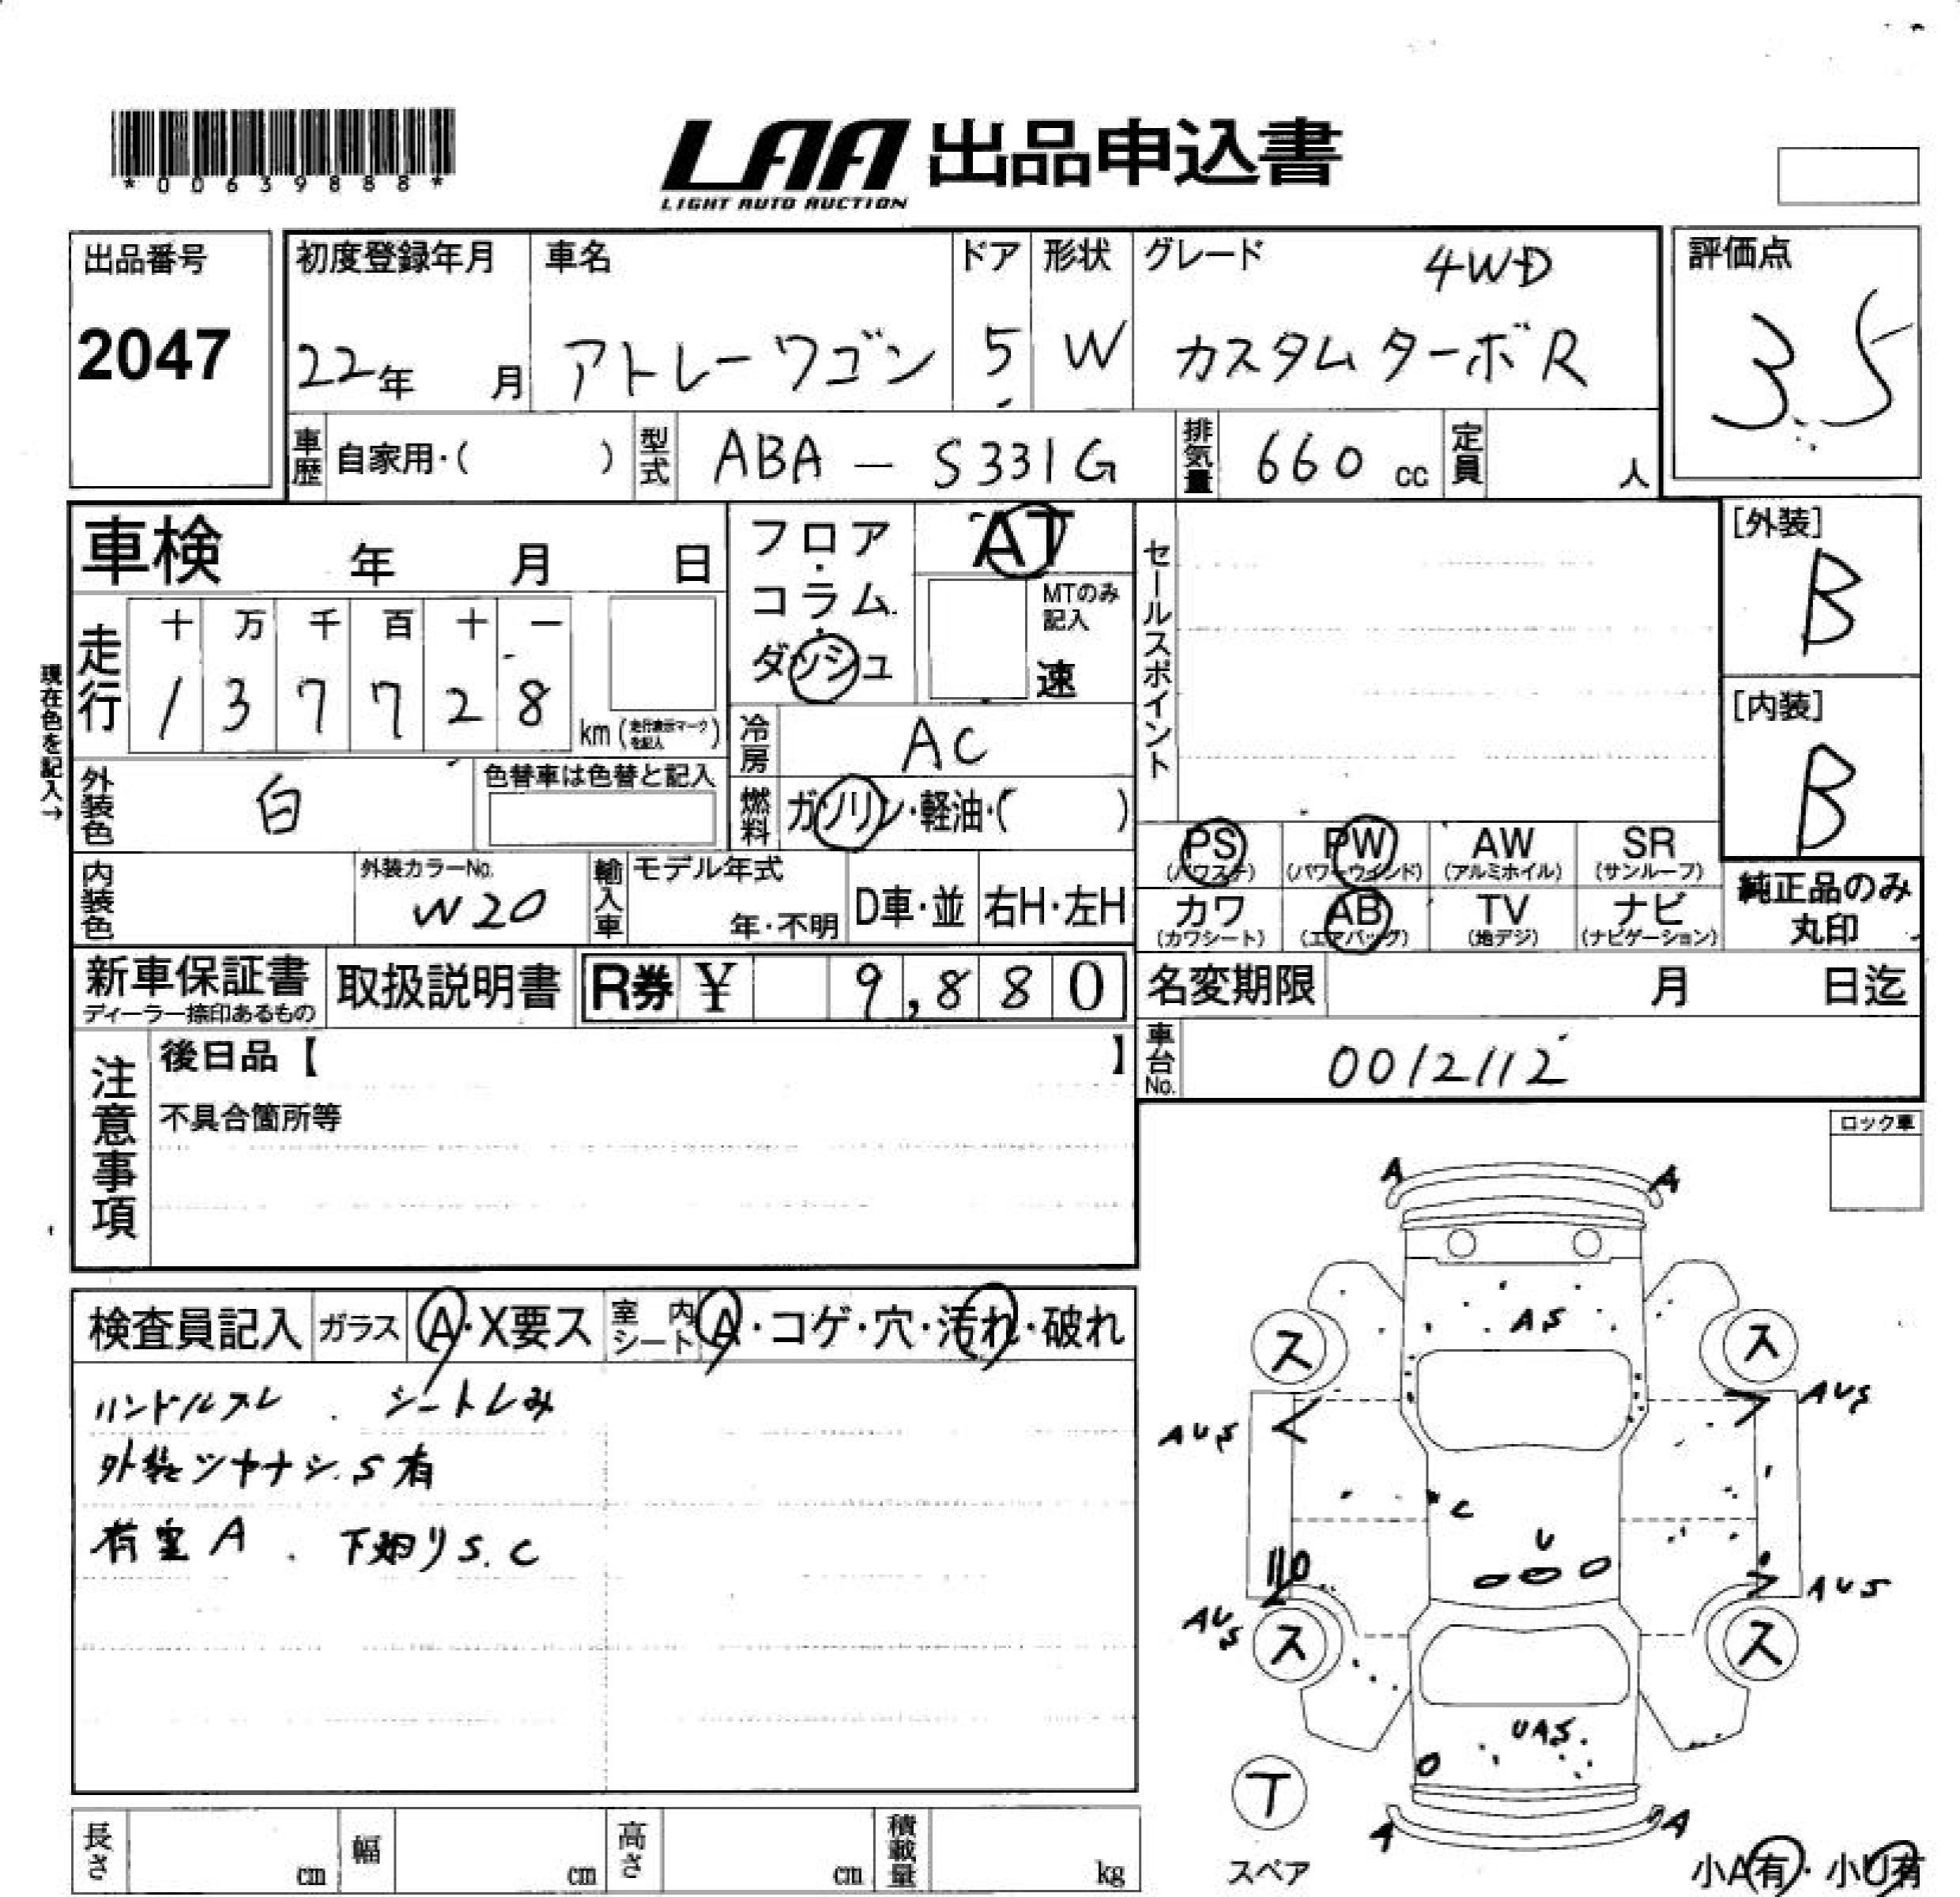 *00639888*
LAA 出品申込書
LIGHT AUTO AUCTION
出品番号
2047
初度登録年月
22年 月
車名
アトレーワゴン
ドア
5
形状
W
グレード 4WD
カスタムターボR
評価点
3.5
車歴 自家用・( )
型式 ABA - S331G
排気量 660 cc
定員 人
車検 年 月 日
現在色を記入→
走行
十 万 千 百 十 一
1 3 7 7 2 8
km (走行表示マークを記入)
フロア・
コラム・
ダッシュ
AT
MTのみ記入
速
冷房 AC
燃料 ガソリン・軽油・( )
外装色 白
色替車は色替と記入
内装色
外装カラーNo.
W20
輸入車
モデル年式
年・不明
D車・並
右H・左H
セールスポイント
[外装]
B
[内装]
B
PS (パワステ)
PW (パワーウインド)
AW (アルミホイル)
SR (サンルーフ)
カワ (カワシート)
AB (エアバッグ)
TV (地デジ)
ナビ (ナビゲーション)
純正品のみ
丸印
新車保証書
ディーラー捺印あるもの
取扱説明書
R券 ¥ 9,880
名変期限 月 日迄
車台No. 0012112
注意事項
後日品【 】
不具合箇所等
ロック車
検査員記入
ガラス A・X要ス
室内シート A・コゲ・穴・汚れ・破れ
ハンドルスレ . シートしみ
外装ツヤナシ.S有
荷室A . 下廻りS.C
A A
AS
ス ス
AUS AUS
C
U
AUS AUS
ス ス
UAS
T
スペア
A A
小A有・小U有
長さ cm
幅 cm
高さ cm
積載量 kg